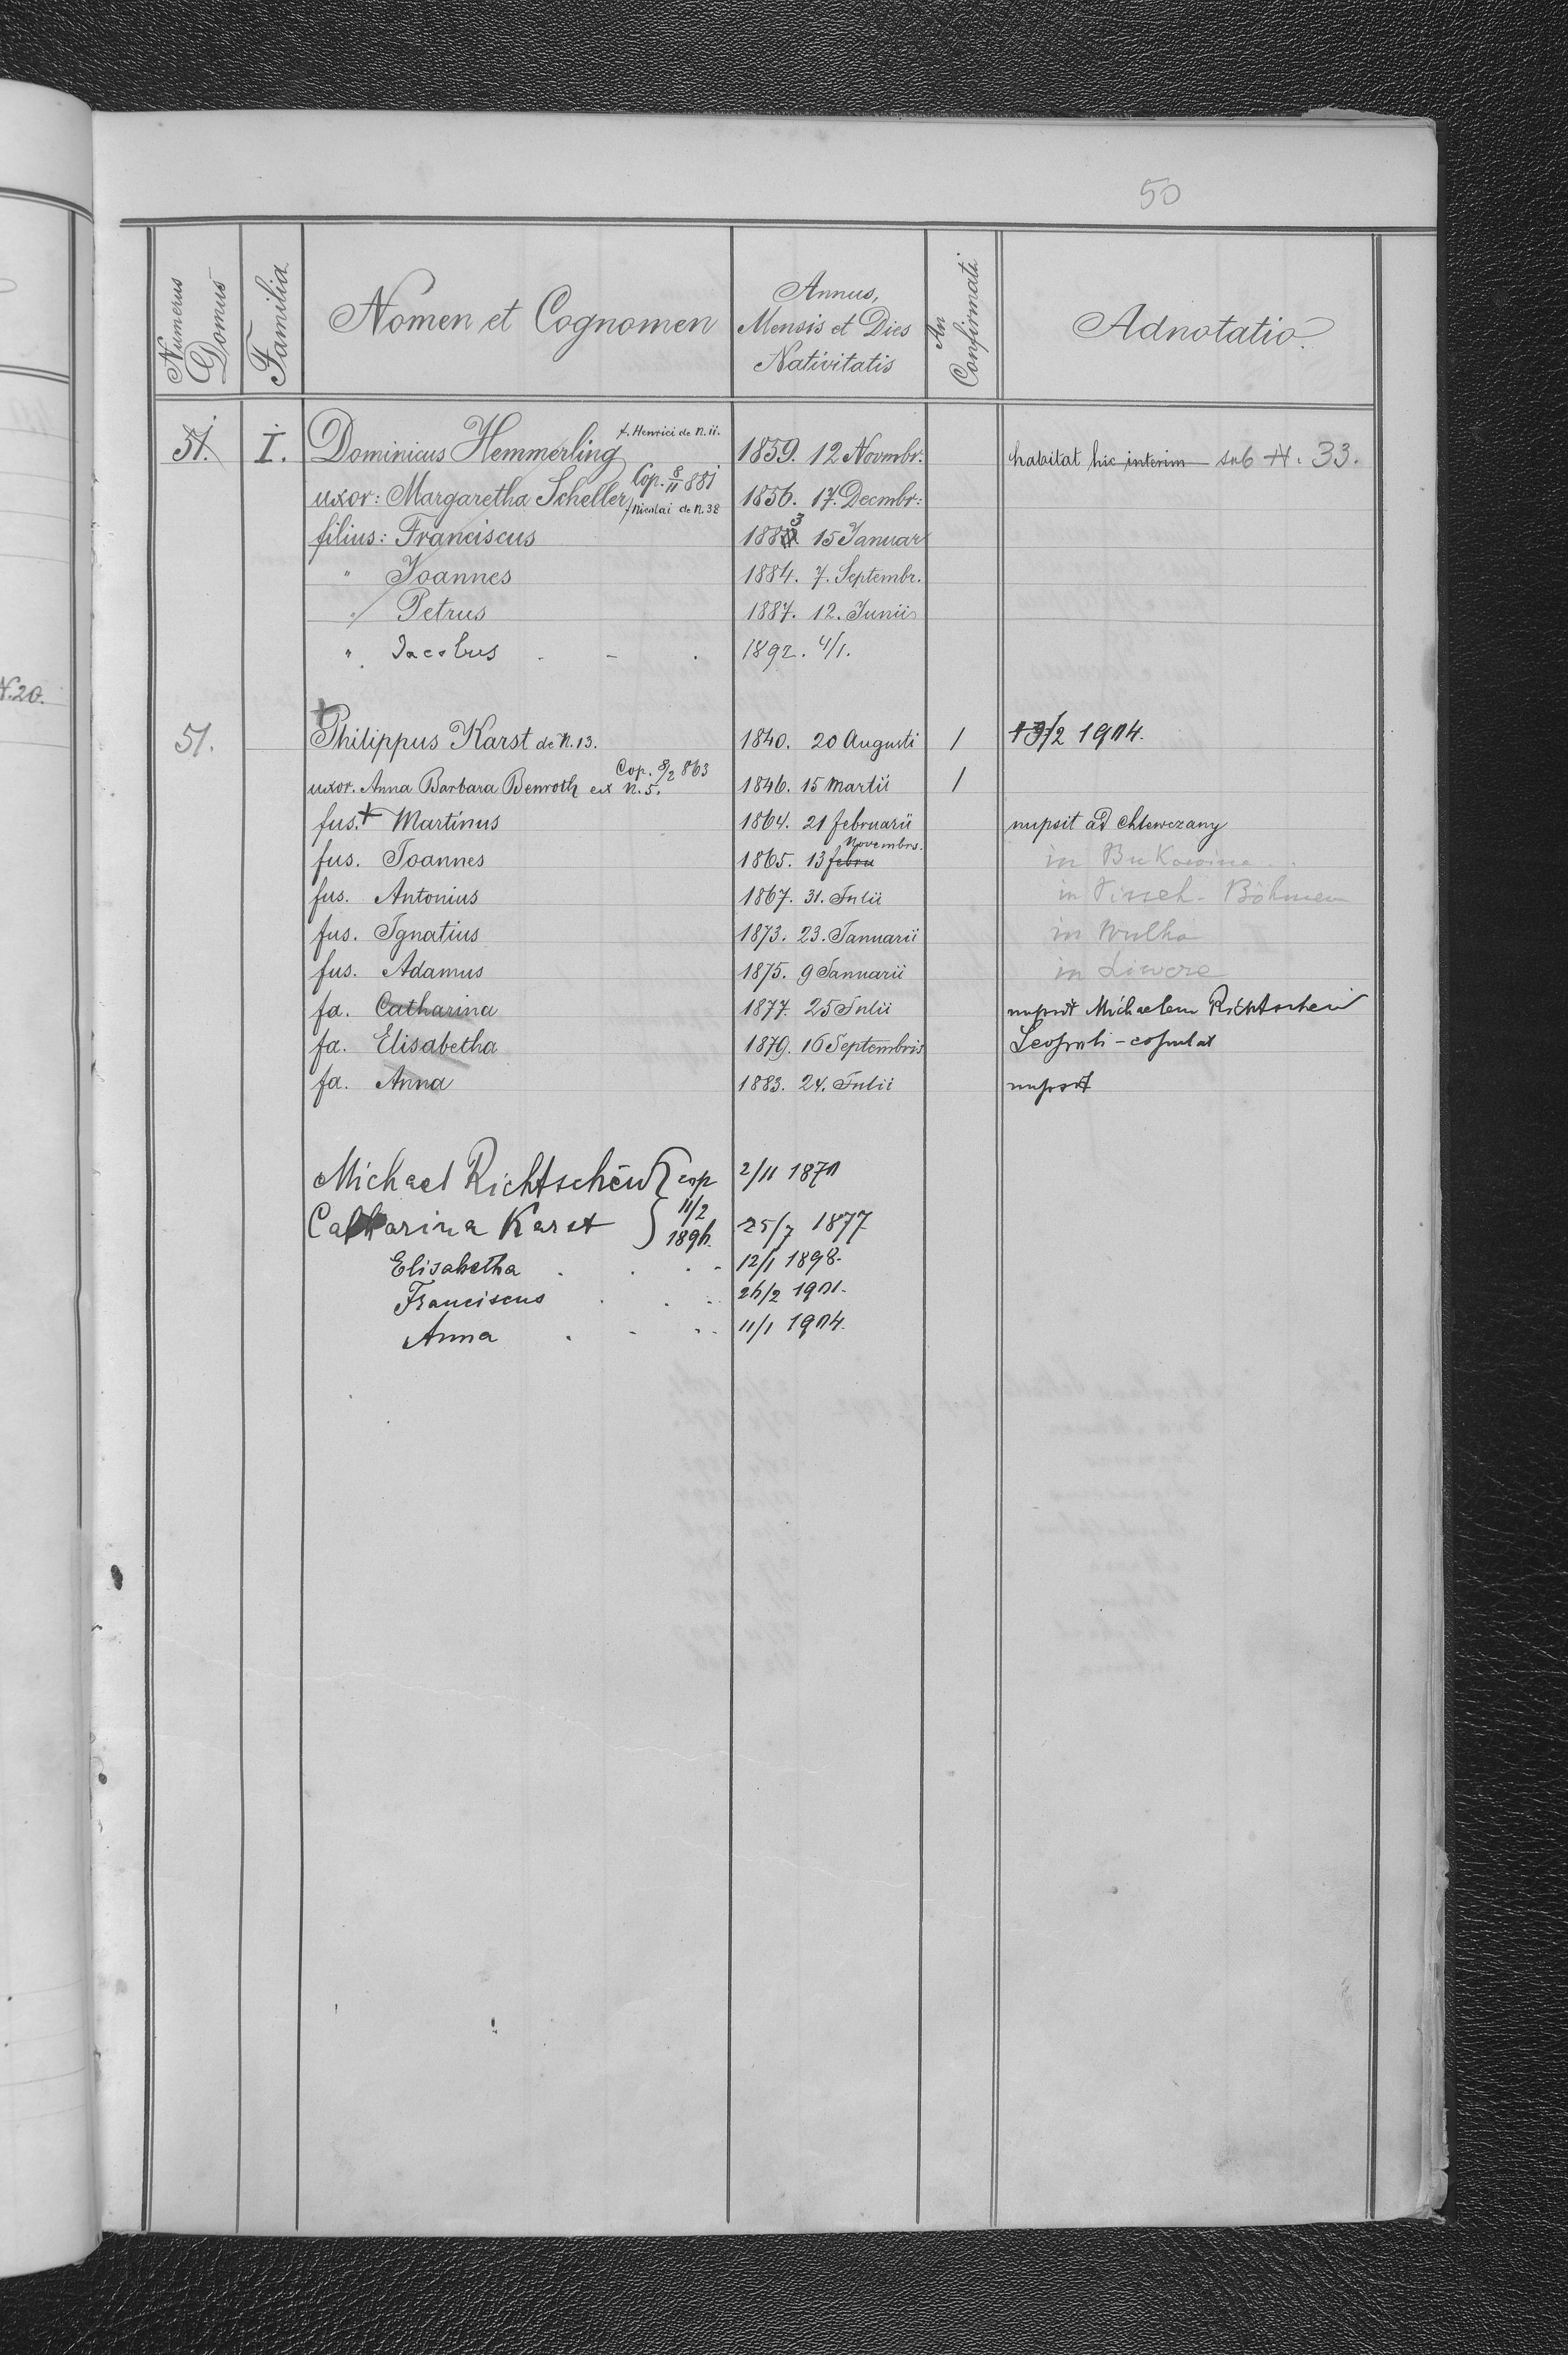 50
Numerus Domus
Familia
Nomen et Cognomen
Annus, Mensis et Dies Nativitatis
An Confirmati
Adnotatio.
N.20.
51. I. Dominicus Hemmerling f. Henrici de N. 11. 1859. 12 Novmbr. habitat hic interim sub N. 33.
uxor: Margaretha Scheller Cop. 8/11 881 f Nicolai de N. 38 1856. 17. Decmbr:
filius: Franciscus 1883 15 Januar
" Joannes 1884. 7. Septembr.
" Petrus 1887. 12. Junii
" Jacobus 1892. 4/1.
51. + Philippus Karst de N. 13. 1840. 20 Augusti 1 13/2 1904.
uxor. Anna Barbara Benroth ex N. 5. Cop. 8/2 863 1846. 15 Martii 1
fus. + Martinus 1864. 21 februarii nupsit ad Chlewczany
fus. Joannes 1865. 13 febru Novembrs. in Bukowina
fus. Antonius 1867. 31. Julii in Böhmen
fus. Ignatius 1873. 23. Januarii in Wulka
fus. Adamus 1875. 9 Januarii in
fa. Catharina 1877. 25 Julii nupsit Michaelem Richtscheid
fa. Elisabetha 1879. 16 Septembris Leopoli - copulat
fa. Anna 1883. 24. Julii nupsit
Michael Richtscheid } cop 2/11 1870
Catharina Karst } 11/2 1896. 25/7 1877
Elisabetha 12/1 1898.
Franciscus 26/2 1901.
Anna 11/1 1904.